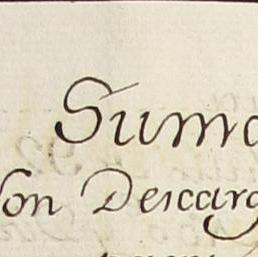 Suma
Son Descarg